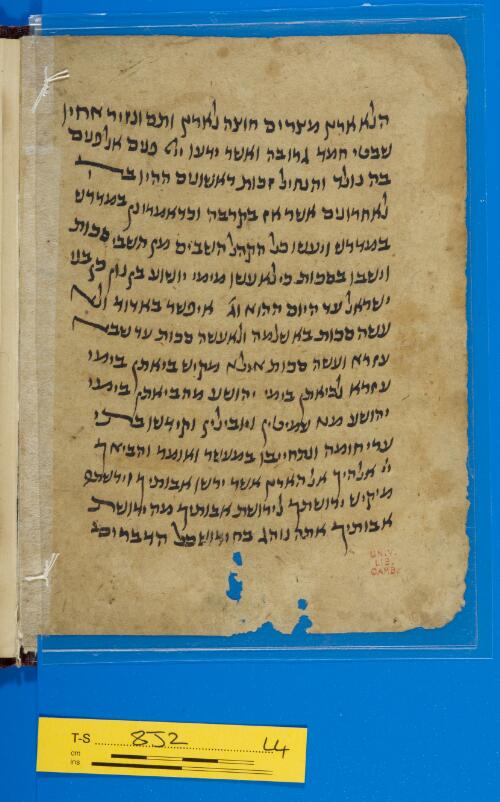 הלא ארץ מצרים חוצה לארץ ותם ונזיר אחין
שבטי חמד גרובה ואשר ידעו ייי פעם אל פעם
בה נולד והנחיל זכות ראשונים ההין
לאחרונים אשר אף בקרבה וכדאמרינן במדרש
במדרש ויעשו כל הקהל השבים מן השבי סכות
וישבו בסכות כי לא עשו מימי יושוע בן נון כן בני
ישראל עד היום ההוא וג׳ איפשר בא דויד ולא
עשה סכות בא שלמה ולא עשה סכות עד שבא
עזרא ועשה סכות אילא מקיש ביאתן בימי
עזרא לביאתן בימי יהושע מה ביאתן בימי
יהושע מנא שמיטין ויובילין וקידשו בתי
ערי חומה ונתחייבו במעשר ואומר והביאך
ייי אלהיך אל הארץ אשר ירשו אבותיך וירשתה
מיקיש ירושתך לירושת אבותיך מה ירושת
אבותיך אתה נוהג בחידוש כל הדברים
UNIV.
LIB.
CAMB.
T-S 8J2 4
cm
ins